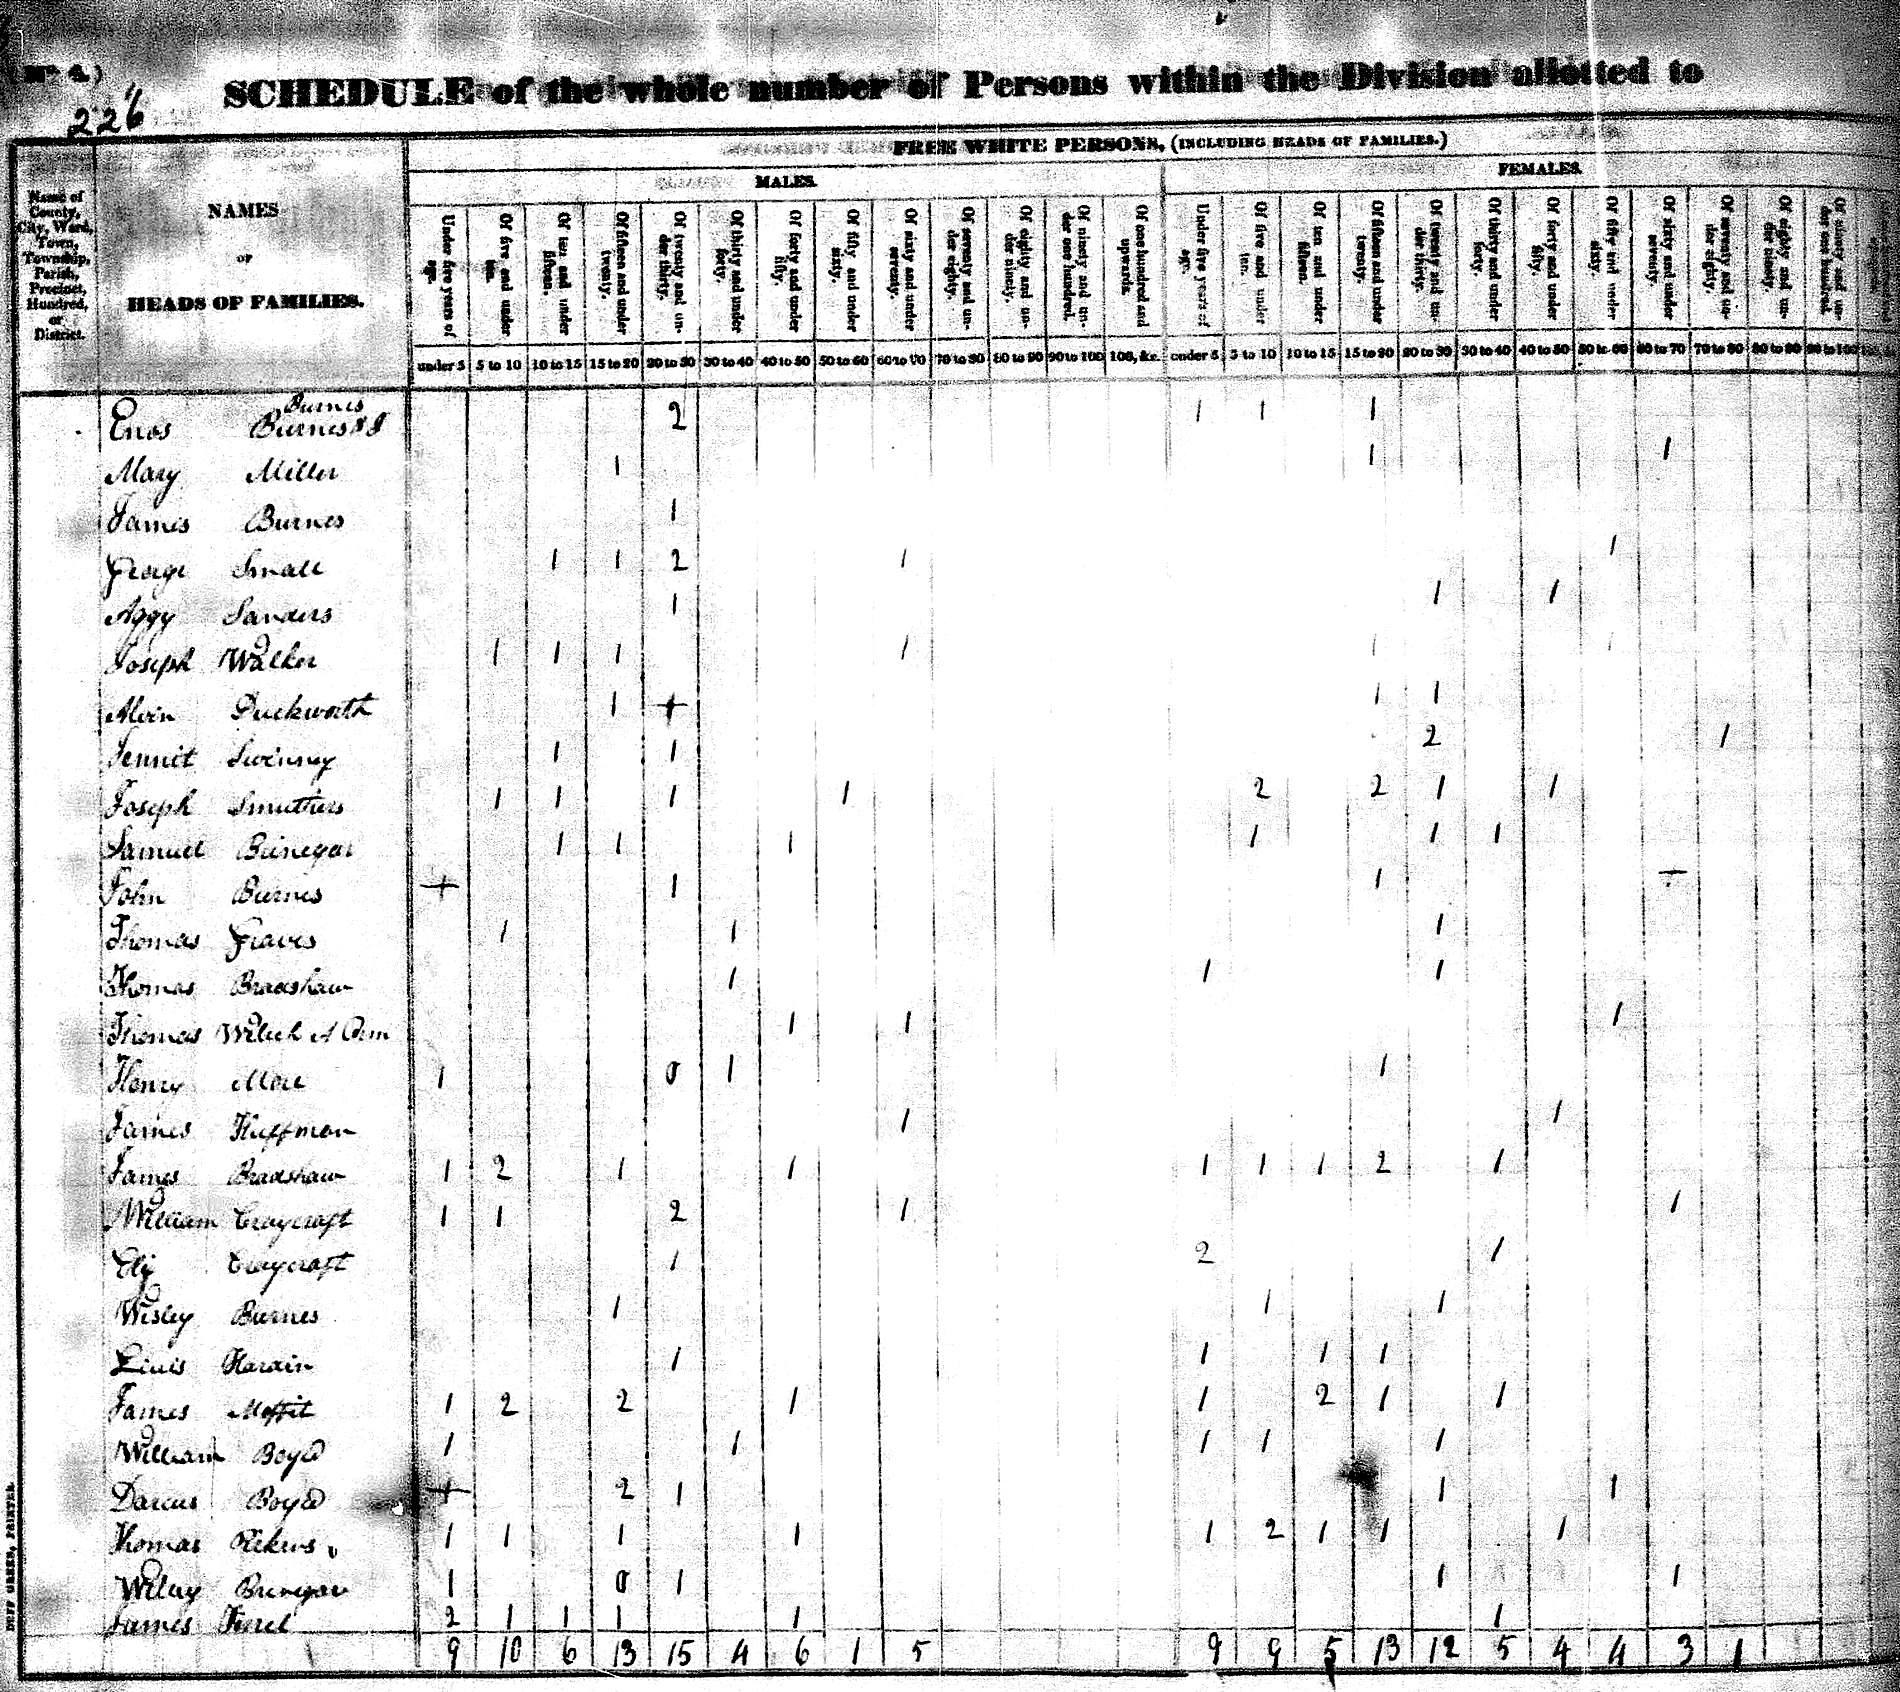 (No 4)
226
SCHEDULE of the whole number of Persons within the Division allotted to
FREE WHITE PERSONS, (INCLUDING HEADS OF FAMILIES.)
MALES.
FEMALES.
Name of County, City, Ward, Town, Township, Parish, Precinct, Hundred, or District.
NAMES
OF
HEADS OF FAMILIES.
Under five years of age.
Of five and under ten.
Of ten and under fifteen.
Of fifteen and under twenty.
Of twenty and under thirty.
Of thirty and under forty.
Of forty and under fifty.
Of fifty and under sixty.
Of sixty and under seventy.
Of seventy and under eighty.
Of eighty and under ninety.
Of ninety and under one hundred.
Of one hundred and upwards.
Under five years of age.
Of five and under ten.
Of ten and under fifteen.
Of fifteen and under twenty.
Of twenty and under thirty.
Of thirty and under forty.
Of forty and under fifty.
Of fifty and under sixty.
Of sixty and under seventy.
Of seventy and under eighty.
Of eighty and under ninety.
Of ninety and under one hundred.
under 5 5 to 10 10 to 15 15 to 20 20 to 30 30 to 40 40 to 50 50 to 60 60 to 70 70 to 80 80 to 90 90 to 100 100, &c. under 5 5 to 10 10 to 15 15 to 20 20 to 30 30 to 40 40 to 50 50 to 60 60 to 70 70 to 80 80 to 90 90 to 100
Burnes
Enos 2 1 1 1
Mary Miller 1 1 1
James Burnes 1
George Small 1 1 2 1 1
Aggy Sanders 1 1 1
Joseph Walker 1 1 1 1 1 1
Alvin Duckworth 1 + 1 1
Jennit Swinney 1 1 2 1
Joseph Smuthers 1 1 1 1 2 2 1 1
Samuel Brinegar 1 1 1 1 1 1
John Burnes + 1 1
Thomas Graves 1 1 1
Thomas Bradshaw 1 1 1
Thomas Welch 1 1 1
Henry More 1 0 1 1
James Huffman 1 1
James Bradshaw 1 2 1 1 1 1 1 2 1
William Craycraft 1 1 2 1 1
Ely Craycraft 1 2 1
Wisley Burnes 1 1 1
Linis Hardin 1 1 1 1
James Moffit 1 2 2 1 1 2 1 1
William Boyd 1 1 1 1 1
Darcus Boyd + 2 1 1 1
Thomas 1 1 1 1 1 2 1 1 1
Wiley Brinegar 1 0 1 1 1
James 2 1 1 1 1 1
9 10 6 13 15 4 6 1 5 9 9 5 13 12 5 4 4 3 1
DUFF GREEN, PRINTER.